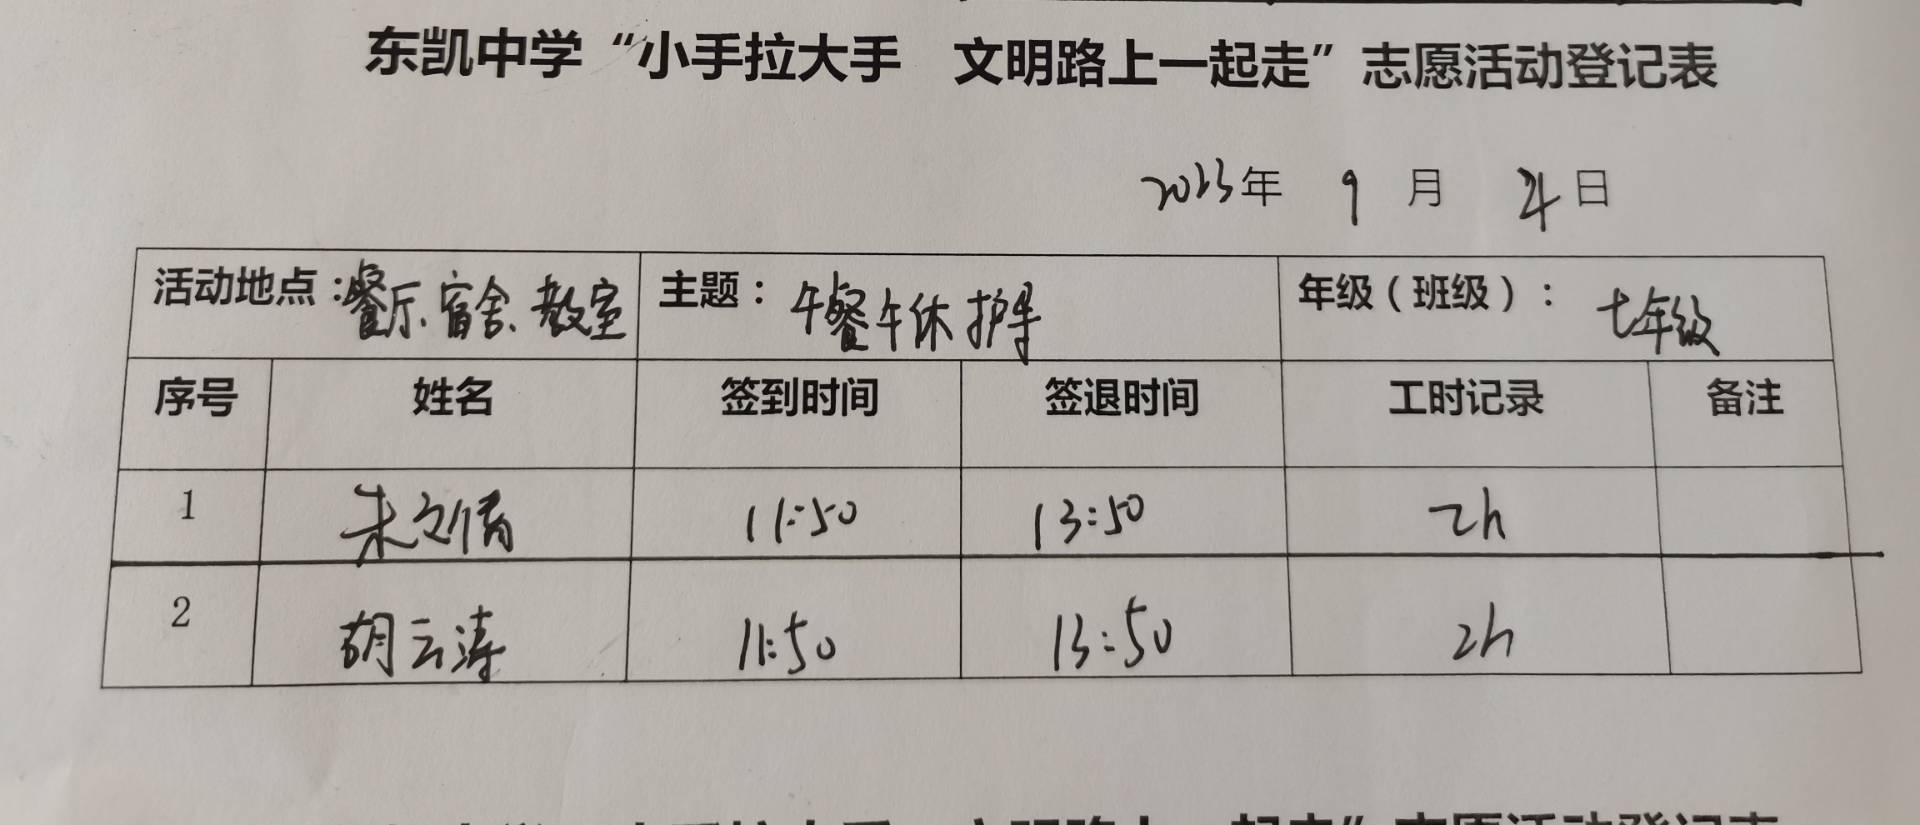 东凯中学“小手拉大手 文明路上一起走”志愿活动登记表
2023年 9 月 日
活动地点：餐厅、宿舍、教室 主题：午餐午休护导 年级（班级）：七年级
序号 姓名 签到时间 签退时间 工时记录 备注
1 朱文倩 11:50 13:50 2h
2 胡云涛 11:50 13:50 2h